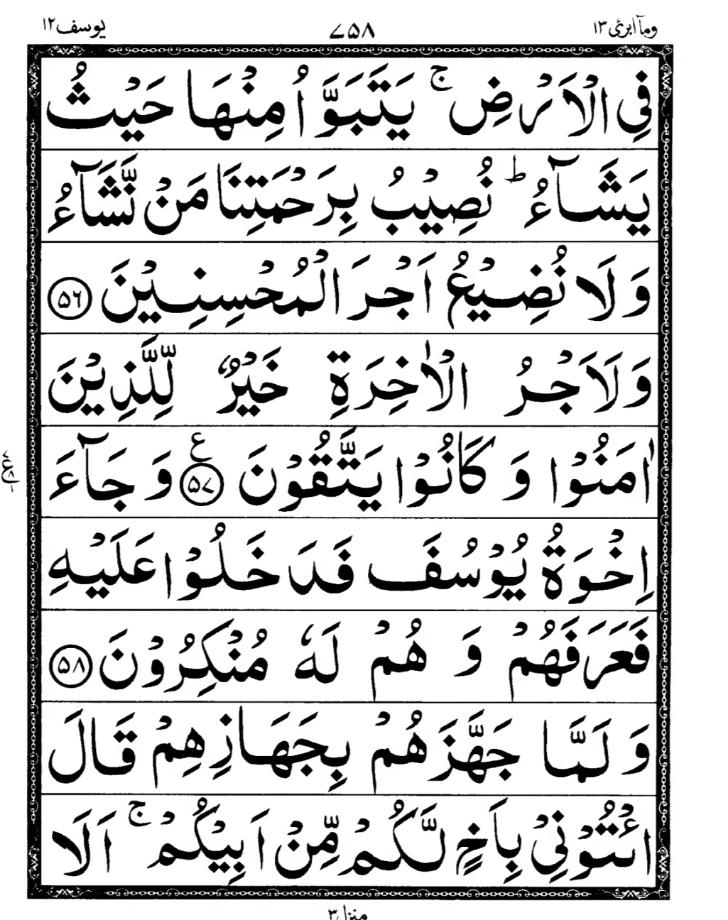 وما ابرئ ۱۳ ۷۵۸ یوسف ۱۲
فِي الْاَرْضِ ۚ يَتَبَوَّاُ مِنْهَا حَيْثُ
يَشَآءُ ؕ نُصِيْبُ بِرَحْمَتِنَا مَنْ نَّشَآءُ
وَلَا نُضِيْعُ اَجْرَ الْمُحْسِنِيْنَ ۵۶
وَلَاَجْرُ الْاٰخِرَةِ خَيْرٌ لِّلَّذِيْنَ
اٰمَنُوْا وَ كَانُوْا يَتَّقُوْنَ ۵۷ ع وَ جَآءَ
اِخْوَةُ يُوْسُفَ فَدَخَلُوْا عَلَيْهِ
فَعَرَفَهُمْ وَ هُمْ لَهٗ مُنْكِرُوْنَ ۵۸
وَ لَمَّا جَهَّزَهُمْ بِجَهَازِهِمْ قَالَ
ائْتُوْنِيْ بِاَخٍ لَّكُمْ مِّنْ اَبِيْكُمْ ۚ اَلَا
منزل ۳